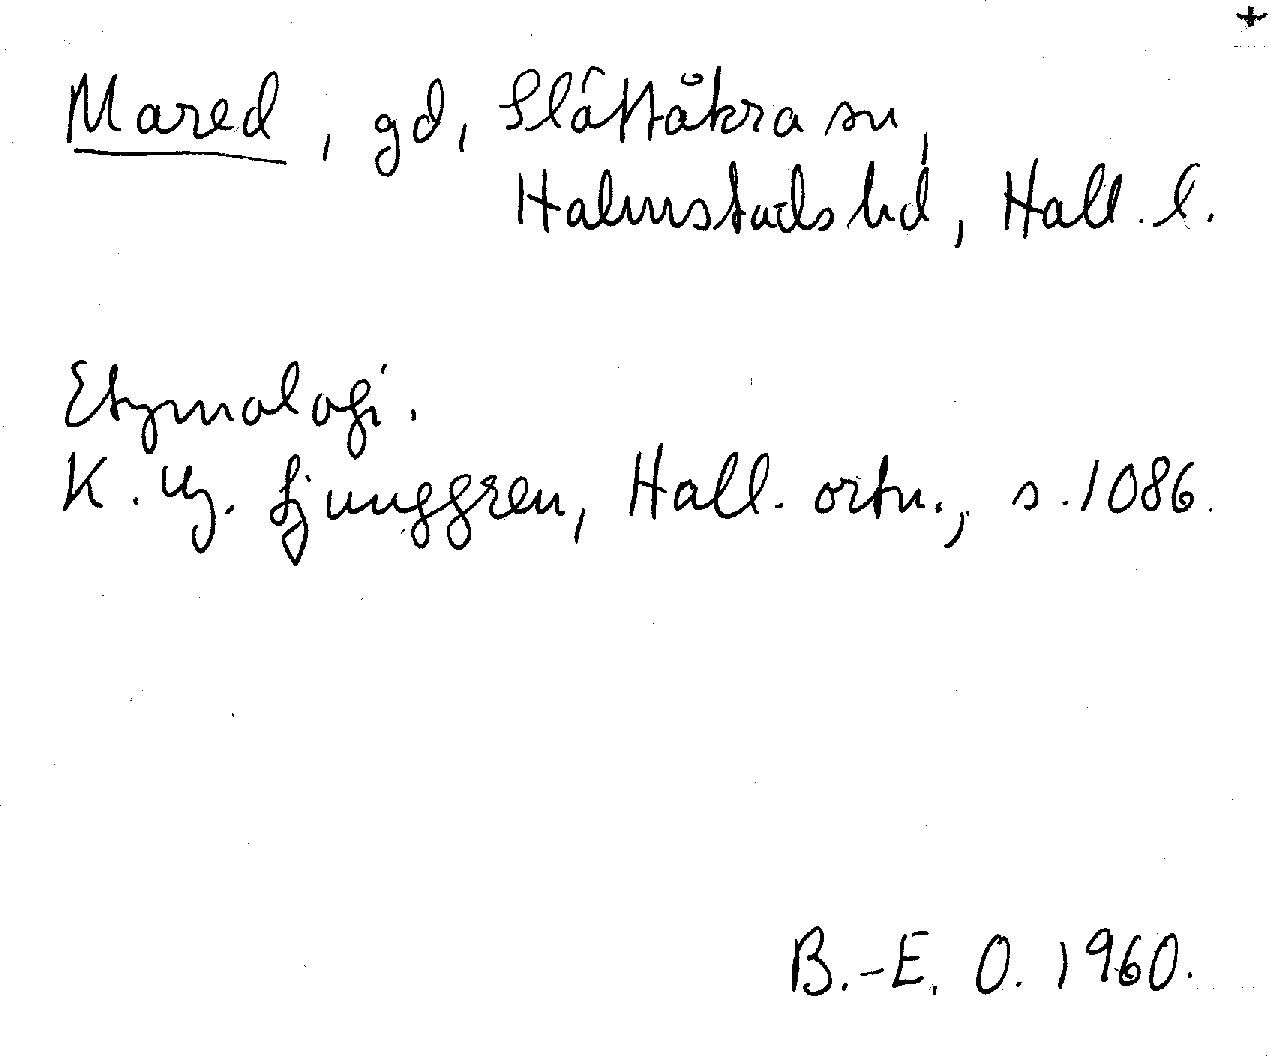 +
Mared, gd, Slättåkra sn,
Halmstads hd, Hall. l.
Etymologi.
K. G. Ljunggren, Hall. ortn., s. 1086.
B.-E. O. 1960.